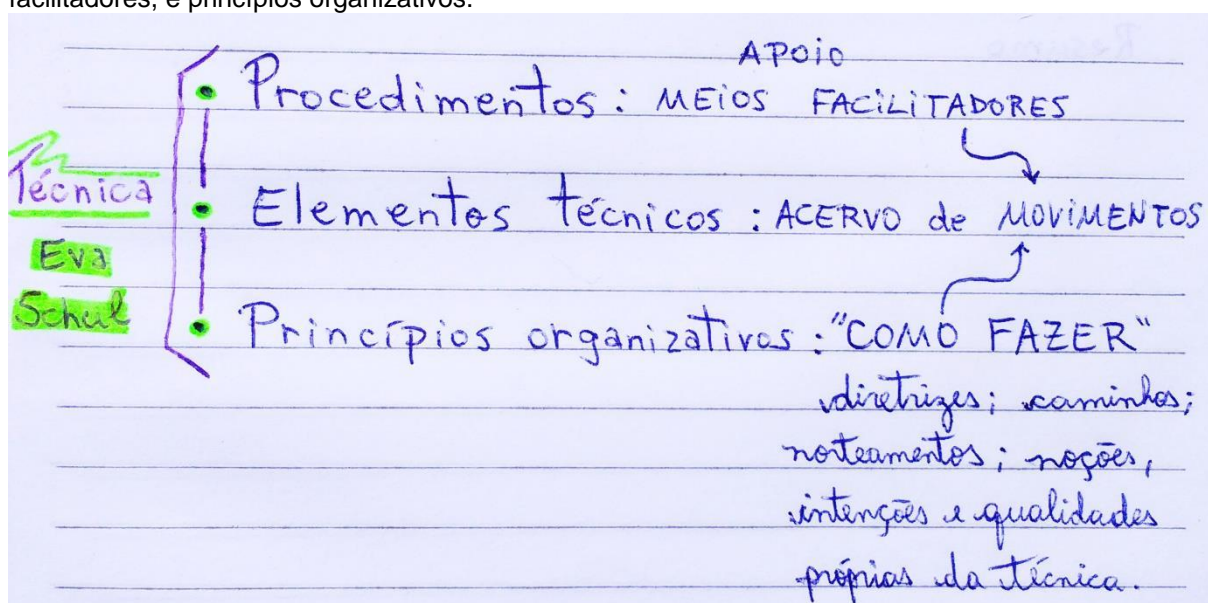 facilitadores, e princípios organizativos.
APOIO
Procedimentos: MEIOS FACILITADORES
Técnica
Elementos técnicos: ACERVO de MOVIMENTOS
Eva
Schul
Princípios organizativos: "COMO FAZER"
diretrizes; caminhos;
norteamentos; noções,
intenções e qualidades
próprias da técnica.